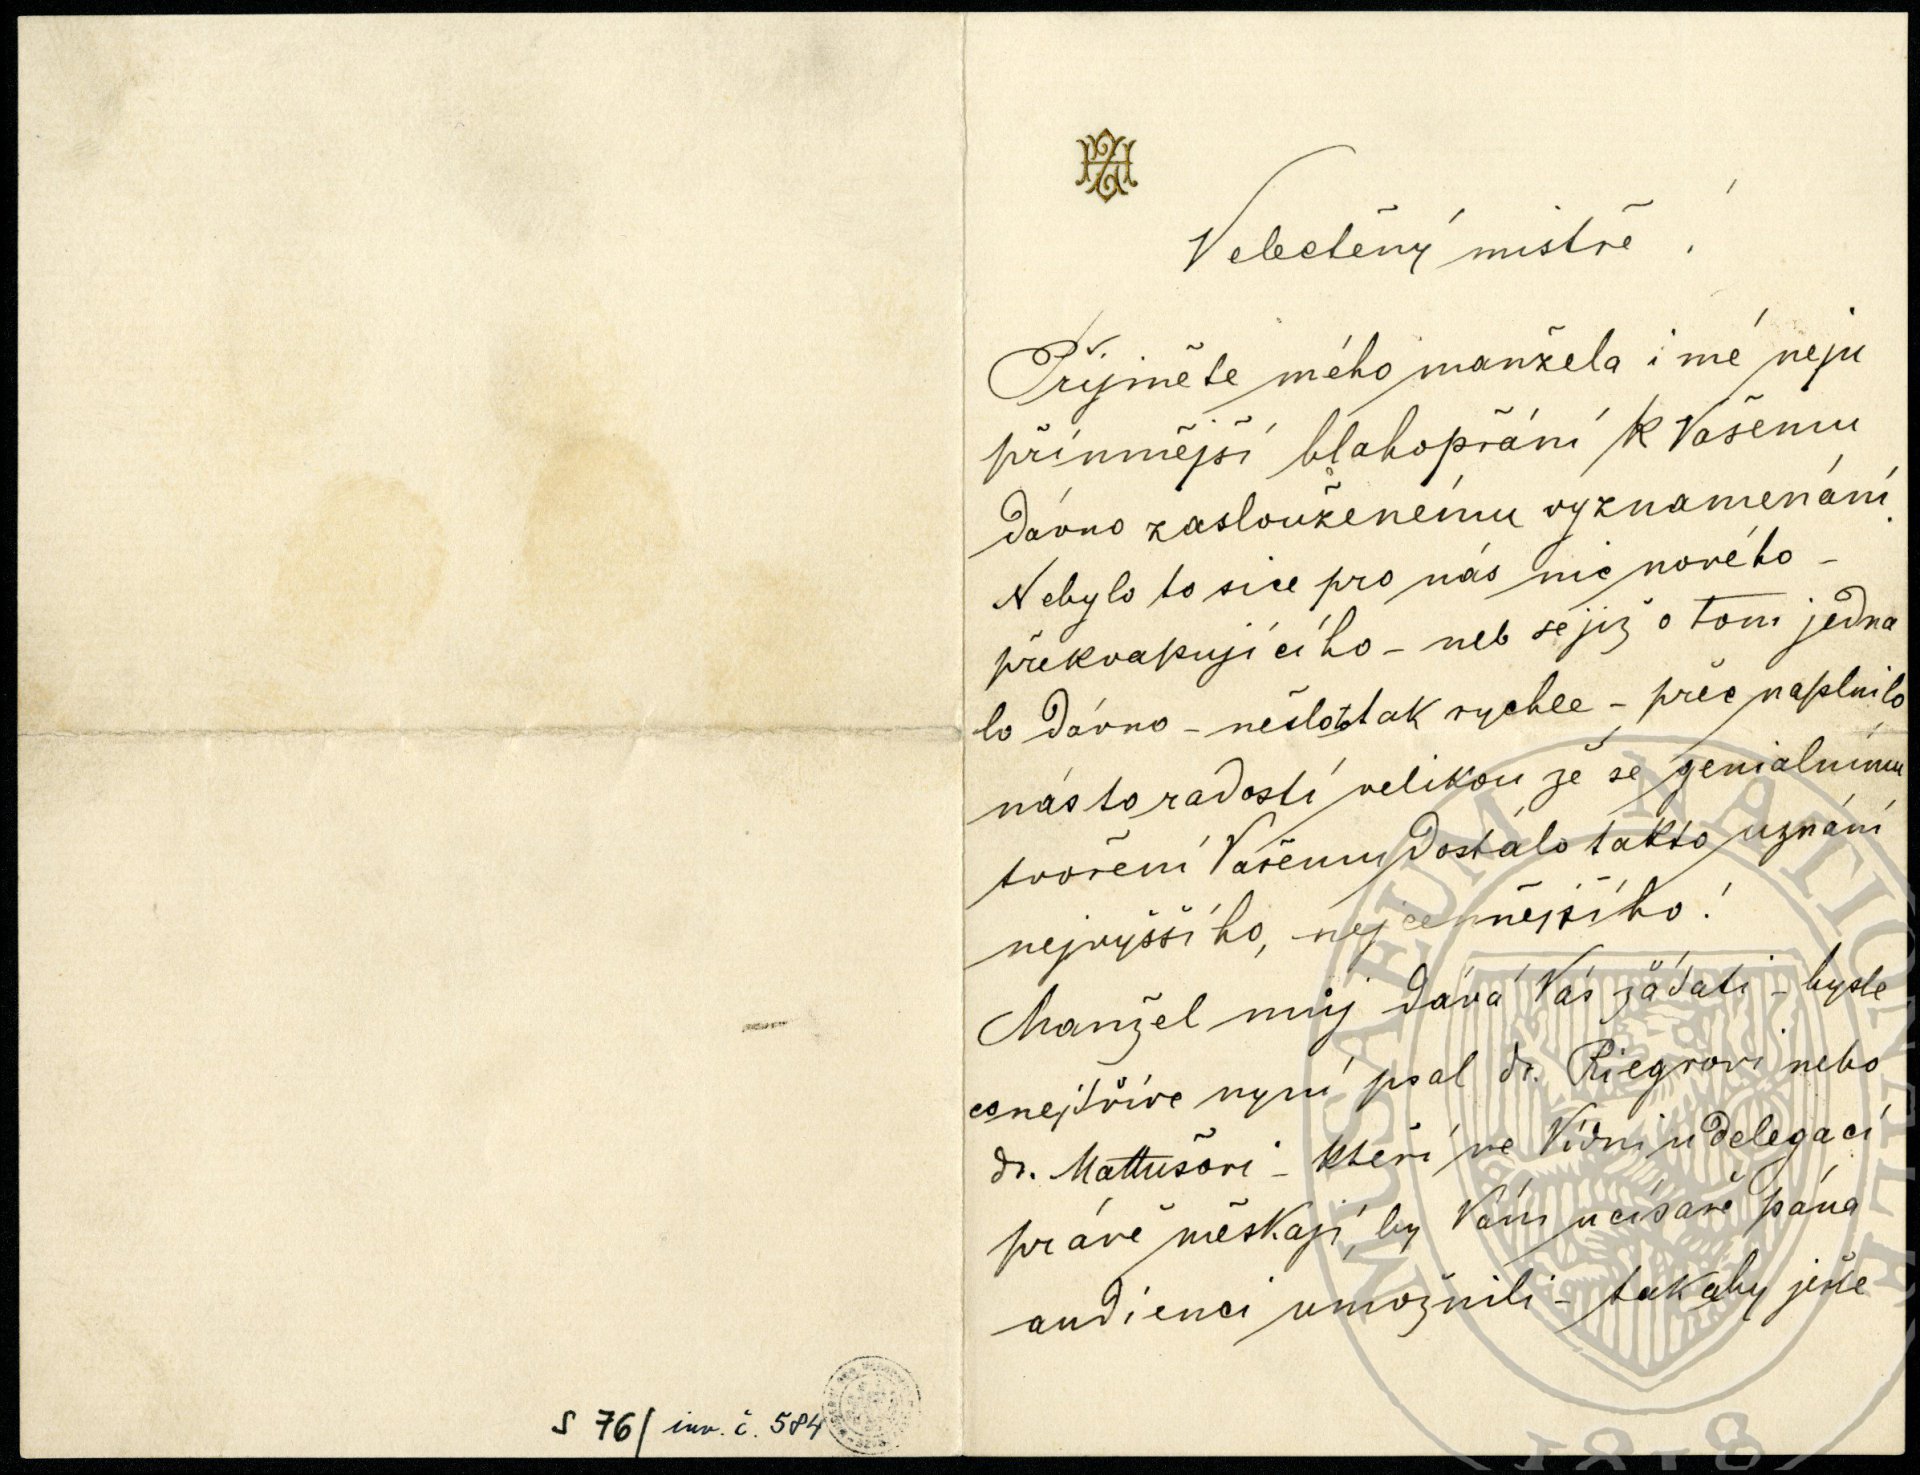 Velectěný mistře!
Přijměte mého manžela i mé neju
přímnější blahopřání k Vašemu
dávno zaslouženému vyznamenání.
Nebylo to sice pro nás nic nového –
překvapujícího – neb se již o tom jedna
lo dávno – nešlo to tak rychle – přec naplnilo
nás to radostí velikou že se genialnímu
tvoření Vašemu dostálo takto uznání
nejvyššího, nejcennějšího!
Manžel můj dává Vás žádati – byste
co nejdříve nyní psal dr. Riegrovi nebo
dr. Mattušovi – kteří ve Vídni u delegací
právě měškají, by Vám u císaře pána
audienci umožnili – tak aby ješte
S 76/ inv. č. 584
MUSAEUM NATIONALE
1818